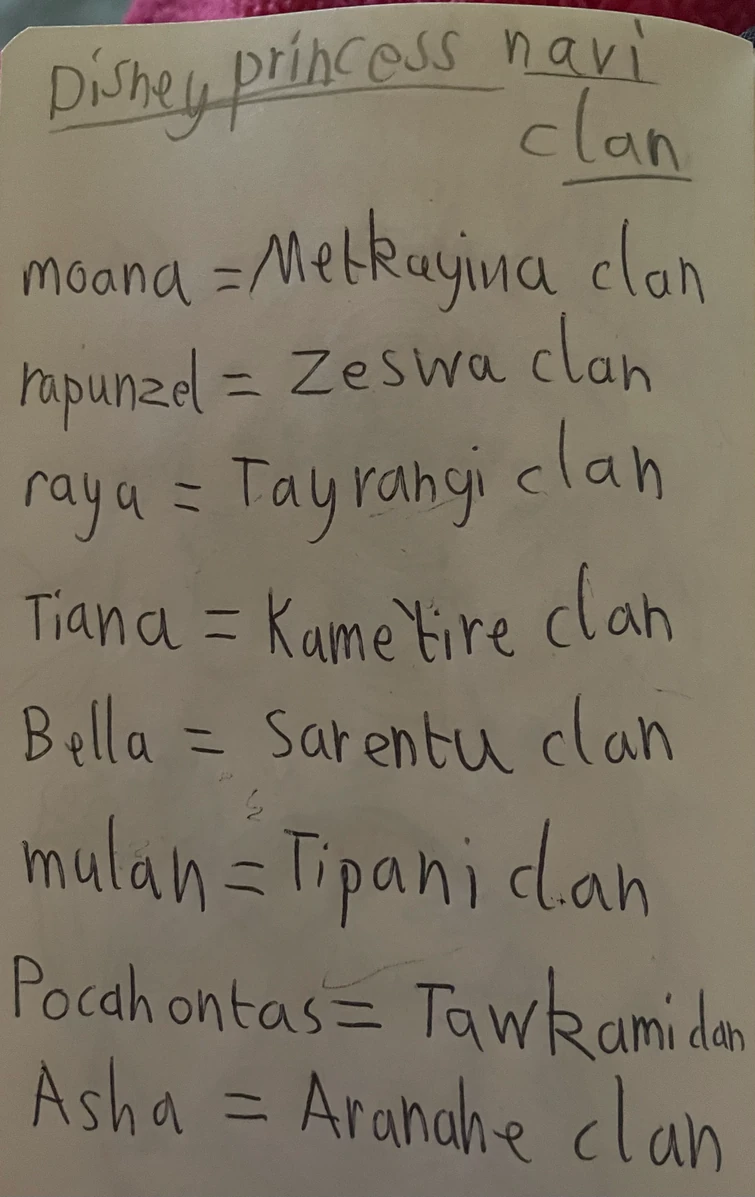 Disney princess navi
clan
moana = Metkayina clan
rapunzel = Zeswa clan
raya = Tayrangi clan
Tiana = Kame'tire clan
Bella = Sarentu clan
mulan = Tipani clan
Pocahontas = Tawkami clan
Asha = Aranahe clan